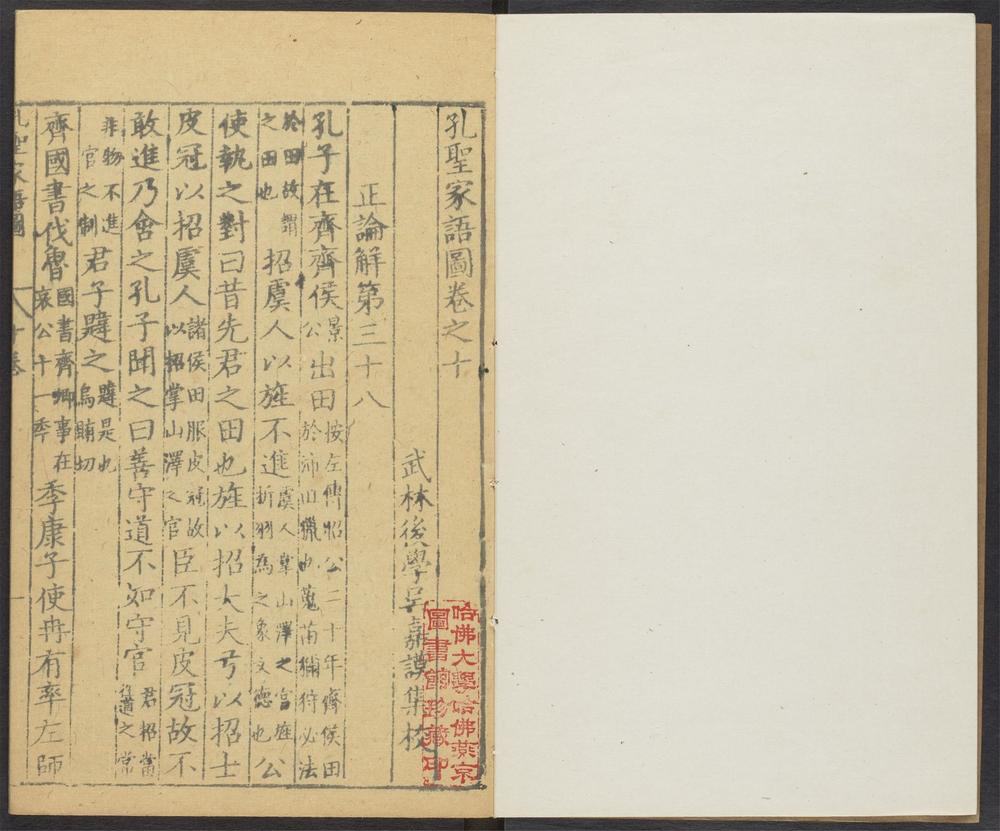 孔聖家語圖卷之十
武林後學吳嘉謨集校
哈佛大學哈佛燕京
圖書館珍藏印
正論解第三十八
孔子在齊齊侯景公出田按左傳昭公二十年齊侯田於沛山獵也蒐苗獮狩必法
於田故謂之田也招虞人以旌不進虞人掌山澤之官旌折羽為之象文德也公
使執之對曰昔先君之田也旌以招大夫弓以招士
皮冠以招虞人諸侯田服皮冠故以招掌山澤之官臣不見皮冠故不
敢進乃舍之孔子聞之曰善守道不如守官君招當往道之常
非物不進官之制君子韙之韙是也烏賄切
齊國書伐魯國書齊卿事在哀公十一年季康子使冉有率左師
孔聖家語圖 八 十卷 一